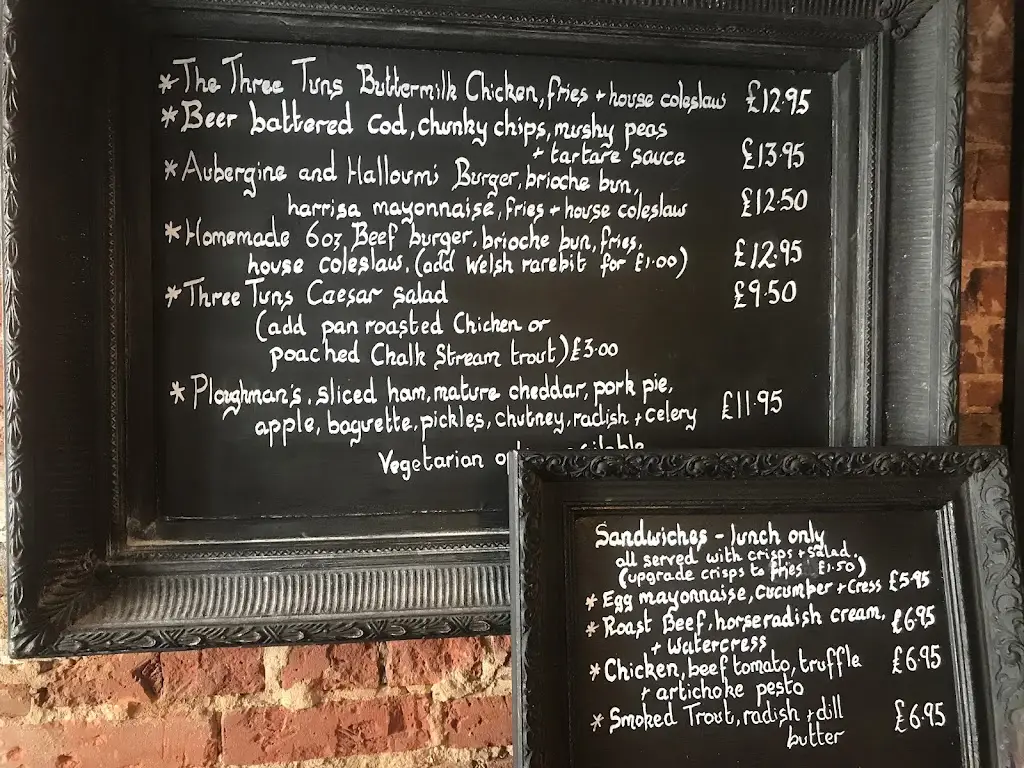 *The Three Tuns Buttermilk Chicken, fries + house coleslaw £12.95
*Beer battered Cod, chunky chips, mushy peas
+ tartare sauce £13.95
*Aubergine and Halloumi Burger, brioche bun,
harrisa mayonnaise, fries + house coleslaw £12.50
*Homemade 6oz Beef burger, brioche bun, fries,
house coleslaw, (add Welsh rarebit for £1.00) £12.95
*Three Tuns Caesar Salad £9.50
(add pan roasted Chicken or
poached Chalk Stream trout) £3.00
*Ploughman's, sliced ham, mature cheddar, pork pie,
apple, baguette, pickles, chutney, radish + celery £11.95
Vegetarian
Sandwiches - lunch only
all served with crisps + salad.
(upgrade crisps to fries £1.50)
* Egg mayonnaise, cucumber + cress £5.95
* Roast Beef, horseradish cream, £6.95
+ watercress
* Chicken, beef tomato, truffle £6.95
+ artichoke pesto
* Smoked Trout, radish + dill £6.95
butter